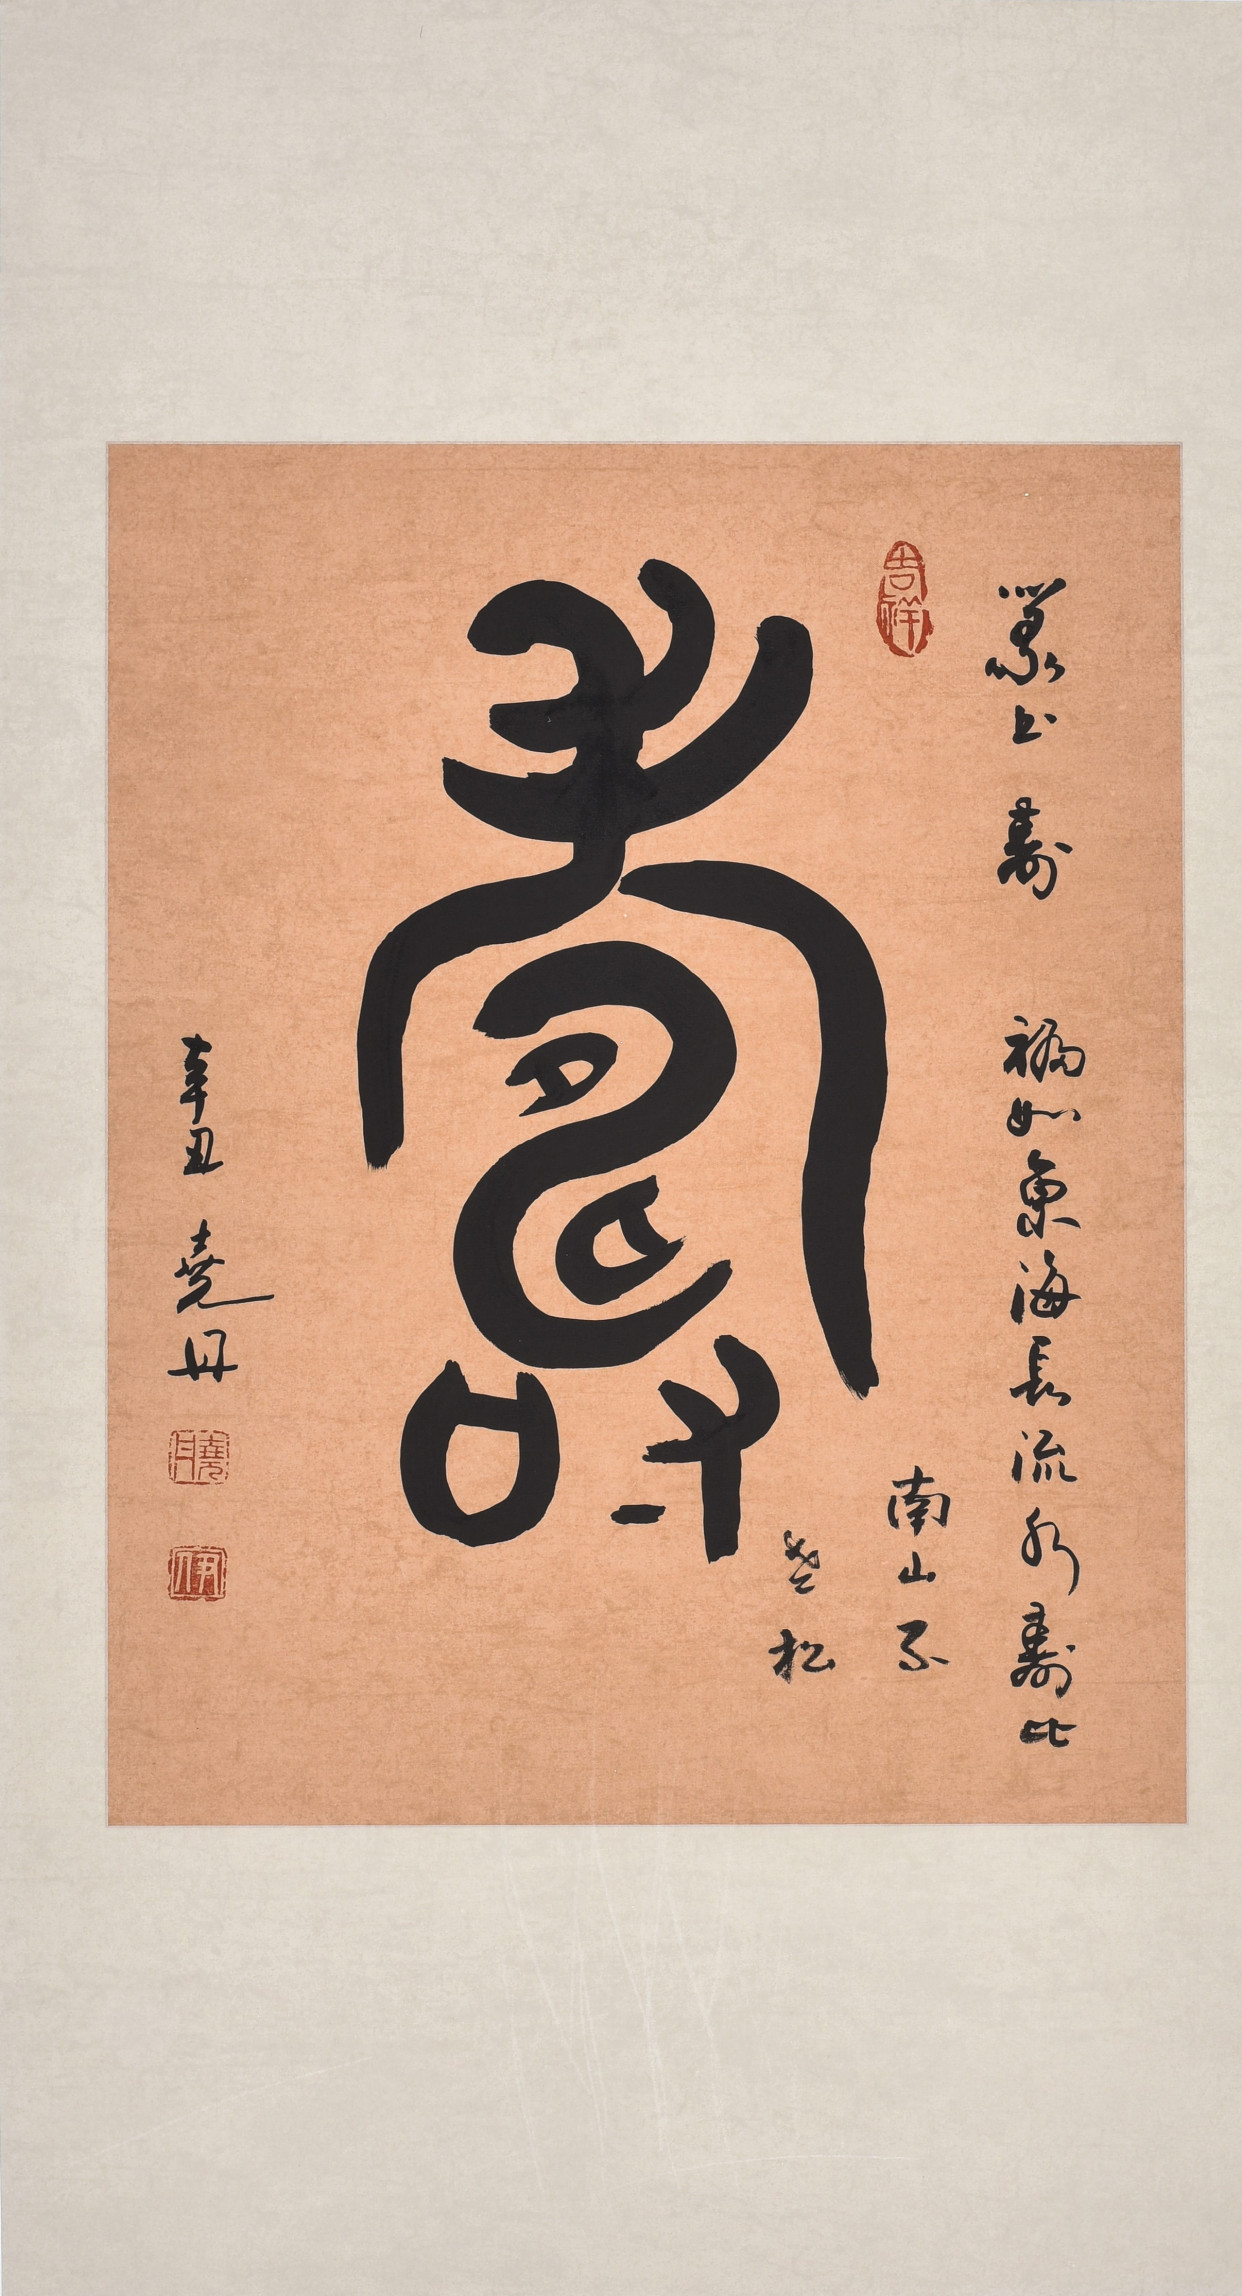 壽
篆书 壽 福如東海長流水壽比
南山不
老松
辛丑 堯丹
吉祥
曉丹
伊